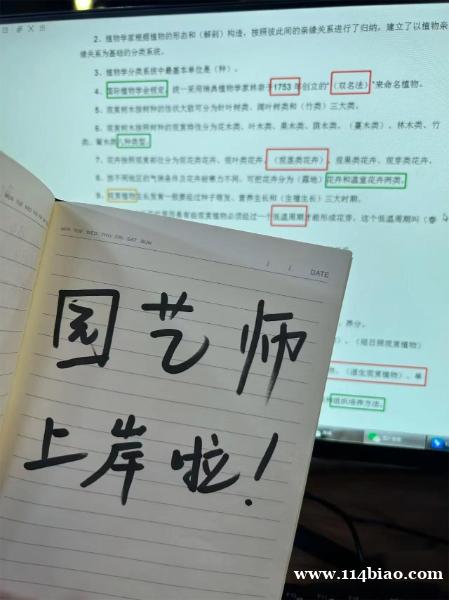 2、植物学家根据植物的形态和（解剖）构造，按照彼此间的亲缘关系进行了归纳，建立了以植物亲
缘关系为基础的分类系统。
3、植物学分类系统中最基本单位是（种）。
4、国际植物学会规定，统一采用瑞典植物学家林奈于1753年创立的"（双名法）"来命名植物。
5、观赏树木按树种的性状大致可分为针叶树类、阔叶树类和（竹类）三大类。
6、观赏树木按照树种的观赏特性分为花木类、叶木类、果木类、荫木类、（蔓木类）、林木类、竹
类、篱木类八种类型。
7、花卉按照观赏部位分为观花类花卉、观叶类花卉、（观茎类花卉）、观果类花卉、观芽类花卉。
8、按不同地区的气候条件及花卉耐寒力不同，可把花卉分为（露地）花卉和温室花卉两类。
9、观赏植物生长发育一般要经过种子萌发、营养生长和（生殖生长）三大时期。
是有些观赏植物必须经过一个低温周期才能形成花芽，这个低温周期叫（春
养分。
）、（短日照观赏植物）
（湿生观赏植物）、
组织培养方法。
MON TUE WED THU FRI SAT SUN
/ / DATE
园艺师
上岸啦！
www.114biao.com